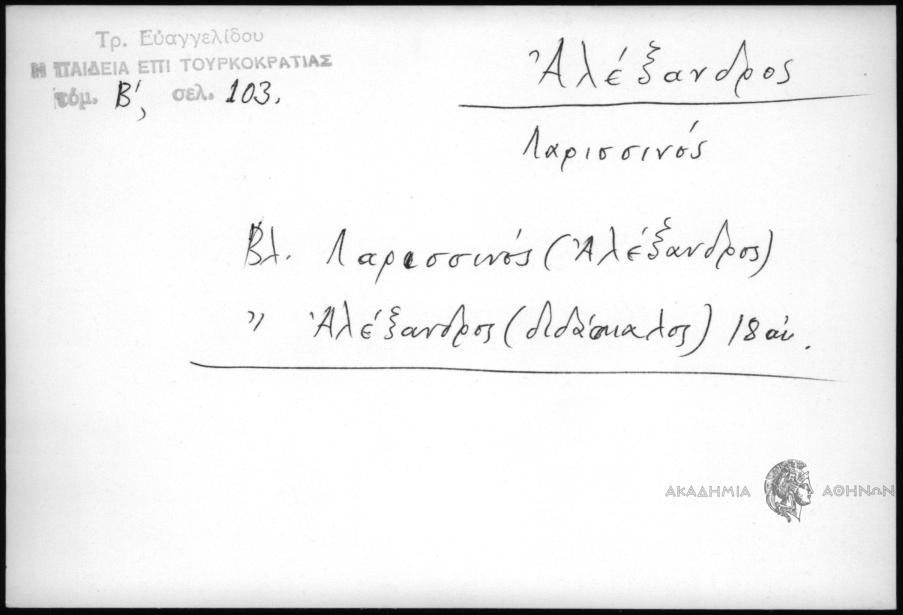 Τρ. Εὐαγγελίδου
Η ΠΑΙΔΕΙΑ ΕΠΙ ΤΟΥΡΚΟΚΡΑΤΙΑΣ
τόμ. Β', σελ. 103.
Ἀλέξανδρος
Λαρισσινός
Βλ. Λαρισσινός (Ἀλέξανδρος)
" Ἀλέξανδρος (διδάσκαλος) 18 αἰ.
ΑΚΑΔΗΜΙΑ ΑΘΗΝΩΝ